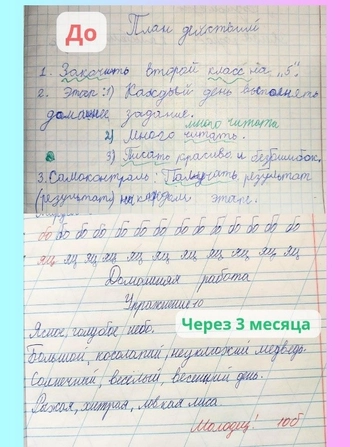 До
План действий
1. Закочить второй класс на „5".
2. Этап: 1) Каждый день выполнять
домашнее задание.
много читать
2) Много читать.
3) Писать красиво и без ошибок.
3. Самоконтроль: Получать результат
(результат) на каждом этапе.
бо бо бо бо бо бо бо бо бо бо бо бо
яц яц яц яц яц яц яц яц яц яц яц яц
Домашняя работа
Упражнение 10
Через 3 месяца
Ясное, голубое небо.
Большой, косолапый, неуклюжий медведь.
Солнечный, весёлый, весенний день.
Рыжая, хитрая, ловкая лиса
Молодец! 10б